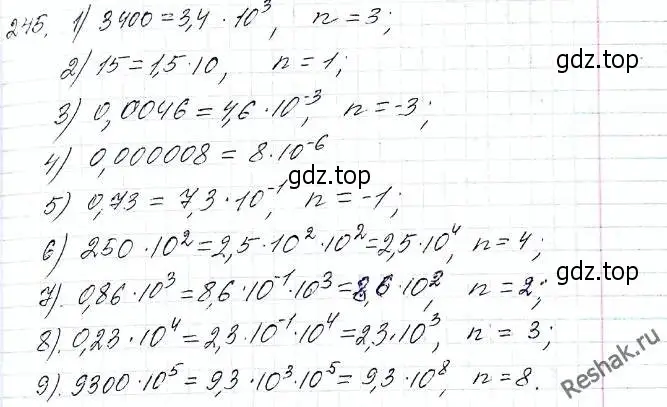 245. 1) 3400 = 3,4 · 10³, n = 3;
2) 15 = 1,5 · 10, n = 1;
3) 0,0046 = 4,6 · 10⁻³, n = -3;
4) 0,000008 = 8 · 10⁻⁶
5) 0,73 = 7,3 · 10⁻¹, n = -1;
6) 250 · 10² = 2,5 · 10² · 10² = 2,5 · 10⁴, n = 4;
7). 0,86 · 10³ = 8,6 · 10⁻¹ · 10³ = 8,6 · 10², n = 2;
8). 0,23 · 10⁴ = 2,3 · 10⁻¹ · 10⁴ = 2,3 · 10³, n = 3;
9). 9300 · 10⁵ = 9,3 · 10³ · 10⁵ = 9,3 · 10⁸, n = 8.
gdz.top
gdz.top
gdz.top
gdz.top
Reshak.ru